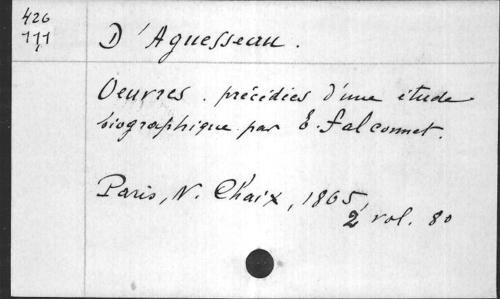 426
111
D'Aguesseau.
Oeuvres. précédées d'une étude
biographique par E. Falconnet.
Paris, N. Chaix, 1865,
2 vol. 80